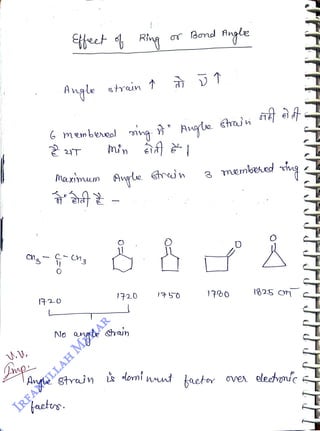 Effect of Ring or Bond Angle
Angle strain ↑ तो ῡ ↑
6 membered ring में Angle strain नही होती
है या min होती है |
Maximum Angle strain 3 membered ring
में होती है -
CH3 - C - CH3
O
O
O
O
O
1720 1720 1750 1780 1825 cm⁻
No angle strain
V.V.
Imp.
Angle strain is dominant factor over electronic
factors.
IRFANULLAH